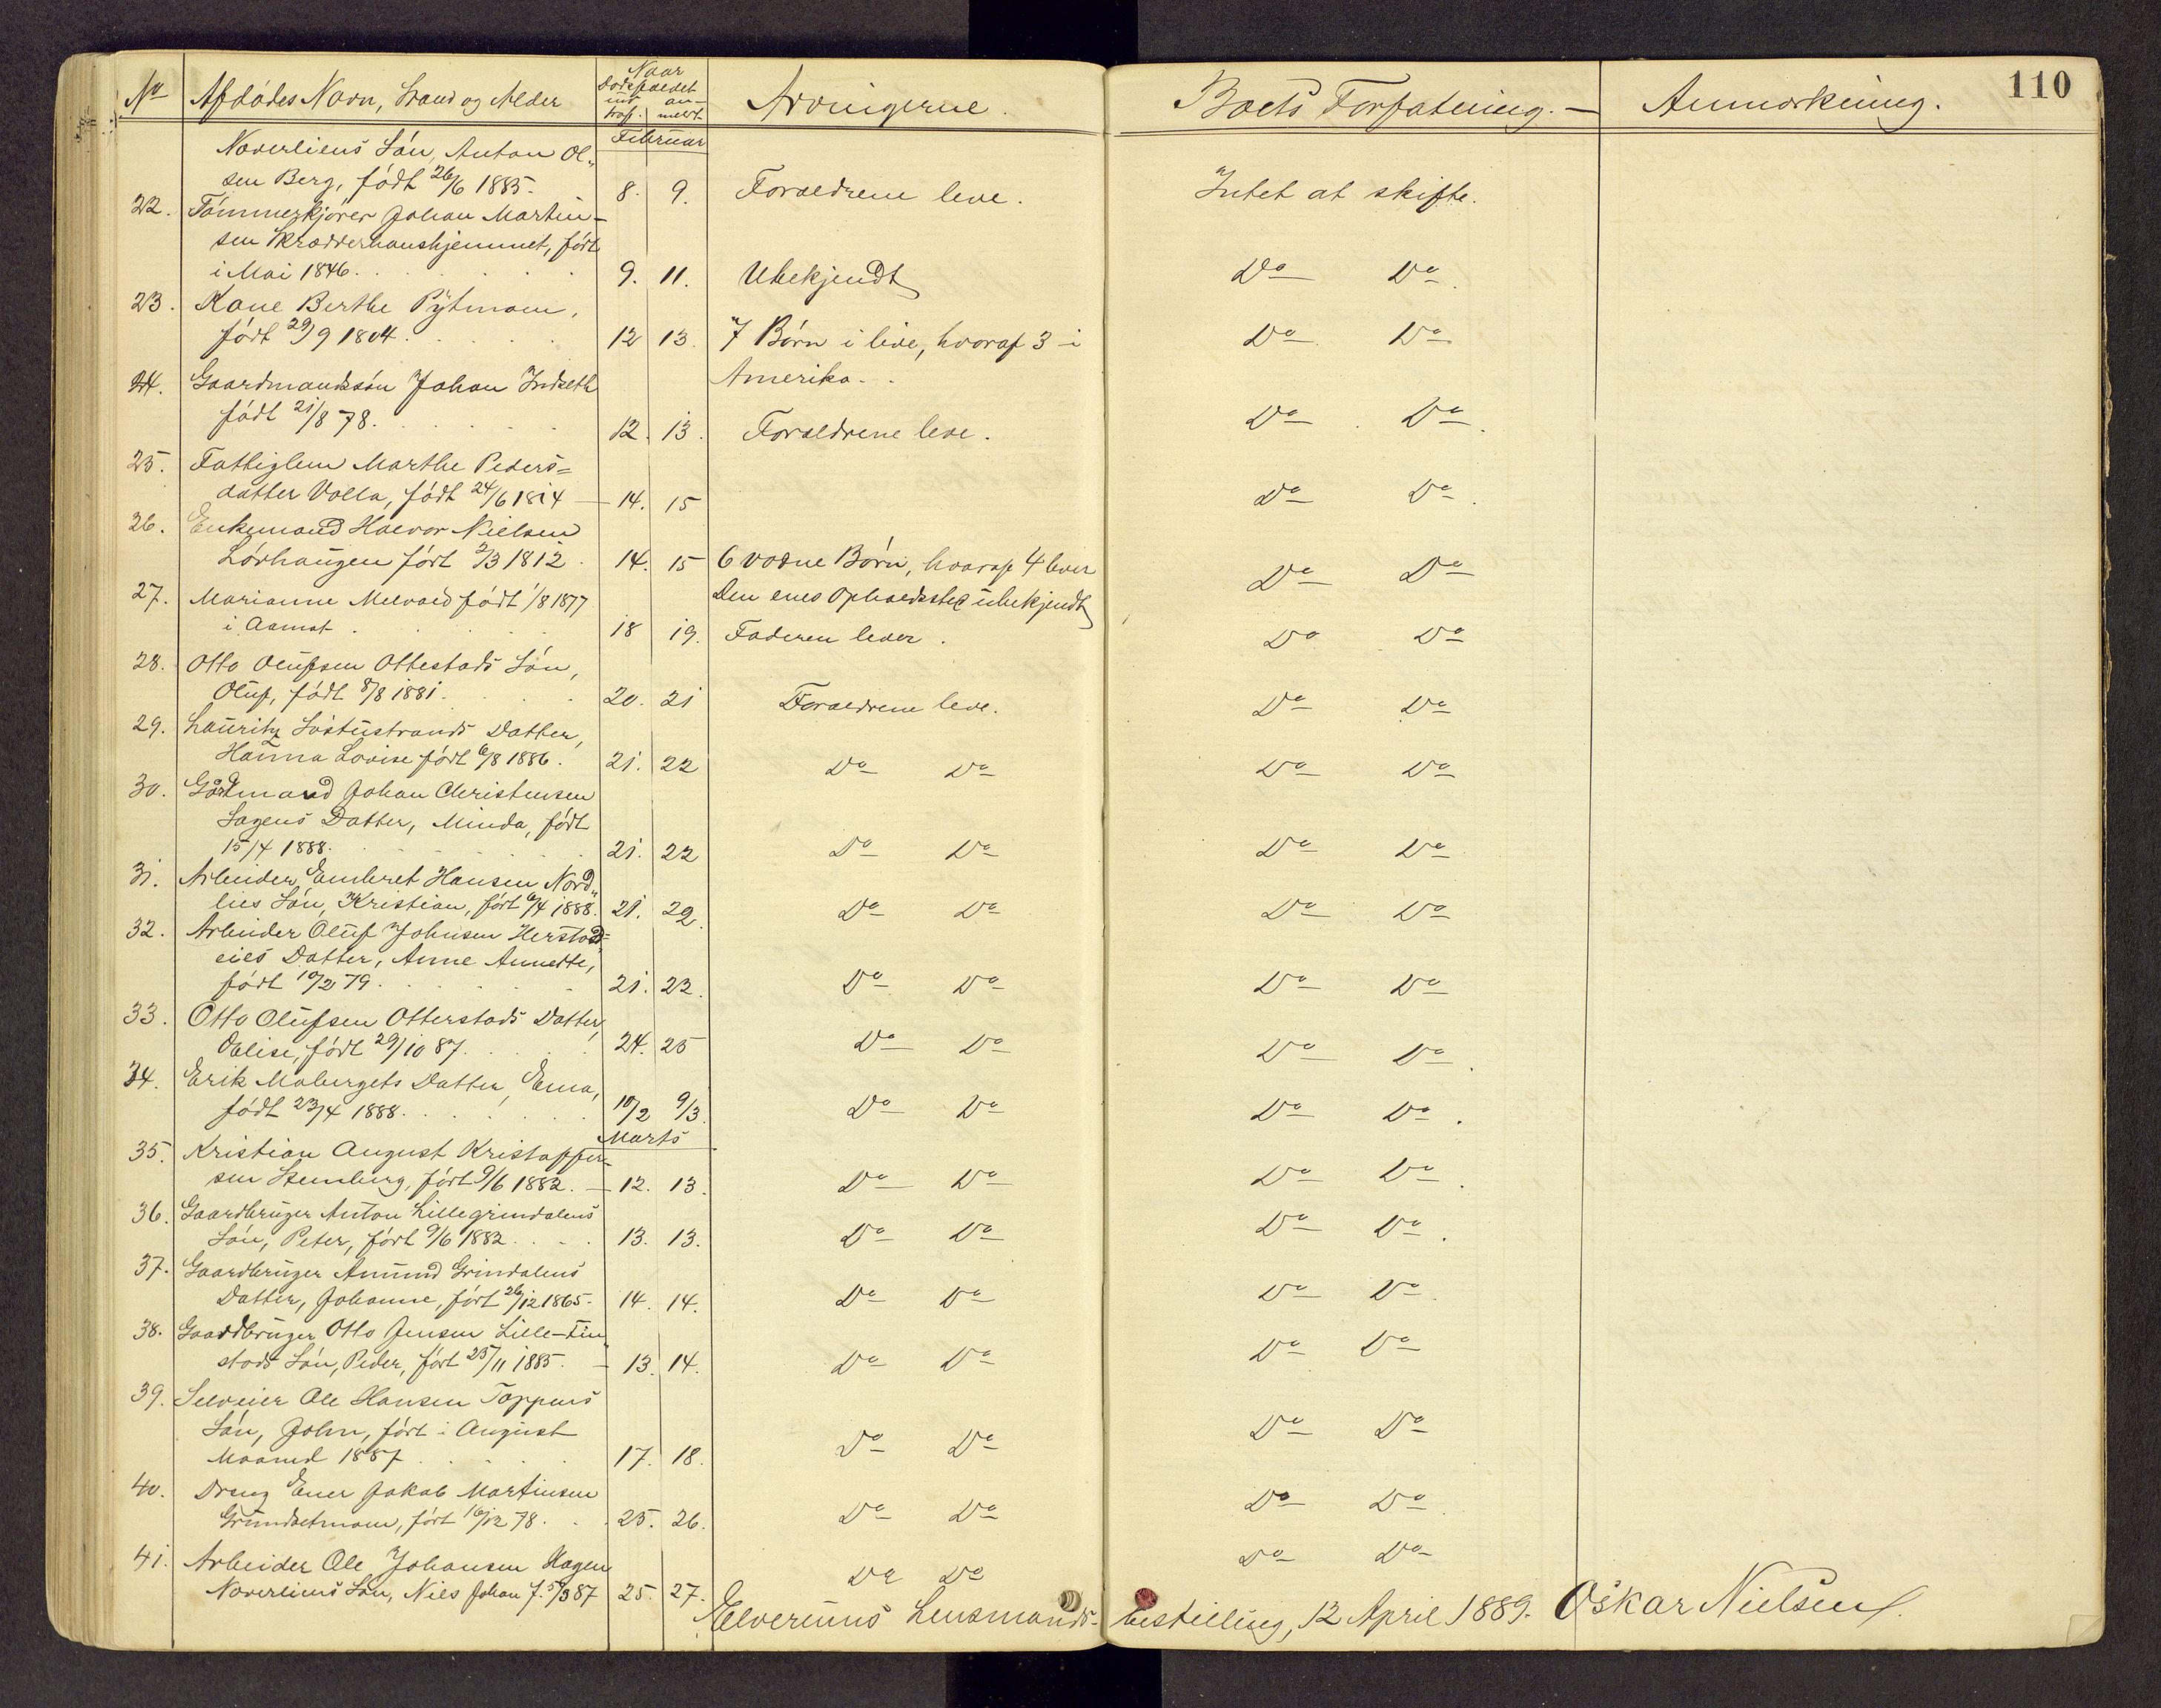 110
No Afdödes Navn, Stand og Alder Naar Dödsfaldet indtraf. anmeldt Arvingerne. Boets Forfatning. — Anmærkning.
Februar
Noverliens Sön, Anton Ol„
sen Berg, födt 26/6 1885. 8. 9. Forældrene leve. Intet at skifte.
22. Tömmerkjörer Johan Martin-
sen Skrædderhaushjemmet, födt
i Mai 1846. 9. 11. Ubekjendt Do Do.
23. Kone Berthe Pytmoen,
födt 29/9 1804. 12 13. 7 Börn i live, hvoraf 3 i Do Do
Amerika.
24. Gaardmandssön Johan Indseth
födt 21/8 78. 12. 13. Forældrene leve. Do Do.
25. Fattiglem Marthe Peders=
datter Volla, födt 24/6 1814 — 14. 15 Do Do.
26. Enkemand Halvor Nielsen
Lövhaugen födt 2/3 1812. 14. 15 6 voxne Börn, hvoraf 4 lever Do Do
Den enes Opholdssted ubekjendt
27. Marianne Melvold födt 1/8 1877
i Aamot. 18 19. Faderen lever. Do Do
28. Otto Olufsen Ottestads Sön,
Oluf, födt 8/8 1881. 20. 21 Forældrene leve. Do Do
29. Lauritz Söstustrands Datter,
Hanna Lovise födt 6/8 1886. 21. 22 Do Do Do Do
30. Gårdmand Johan Christensen
Sagens Datter, Minda, födt
15/4 1888. 21. 22 Do Do Do Do
31. Arbeider Embret Hansen Nord„
lies Sön, Kristian, födt 6/4 1888. 21. 22. Do Do Do Do
32. Arbeider Oluf Johnsen Herstad=
eies Datter, Anne Annette,
födt 10/2 79. 21. 23. Do Do Do Do
33. Otto Olufsen Otterstads Datter,
Oelise, födt 29/10 87. 24. 25 Do Do Do Do.
34. Erik Mobergets Datter, Ema,
födt 23/4 1888. 10/2 9/3. Do Do Do Do.
Marts
35. Kristian August Kristoffer-
sen Stemberg, födt 9/6 1882. — 12. 13. Do Do Do Do.
36. Gaardbruger Anton Lillegrindalens
Sön, Peter, födt 9/6 1882. 13. 13. Do Do Do Do.
37. Gaardbruger Amund Grindalens
Datter, Johanne, födt 26/12 1865. 14. 14. Do Do Do Do.
38. Gaardbruger Otto Jensen Lille-Fin„
stads Sön, Peder, födt 25/11 1885. — 13. 14. Do Do Do Do
39. Selveier Ole Hansen Toppens
Sön, John, födt i August
Maaned 1887. 17. 18. Do Do Do Do
40. Dreng Ener Jakob Martinsen
Grundsetmoen, födt 16/12 78. 25. 26. Do Do Do Do.
41. Arbeider Ole Johansen Hagen
Noverliens Sön, Niels Johan f. 5/3 87 25. 27. Do Do Do Do
Elverums Lensmands-bestilling, 12 April 1889. Oskar Nielsen.